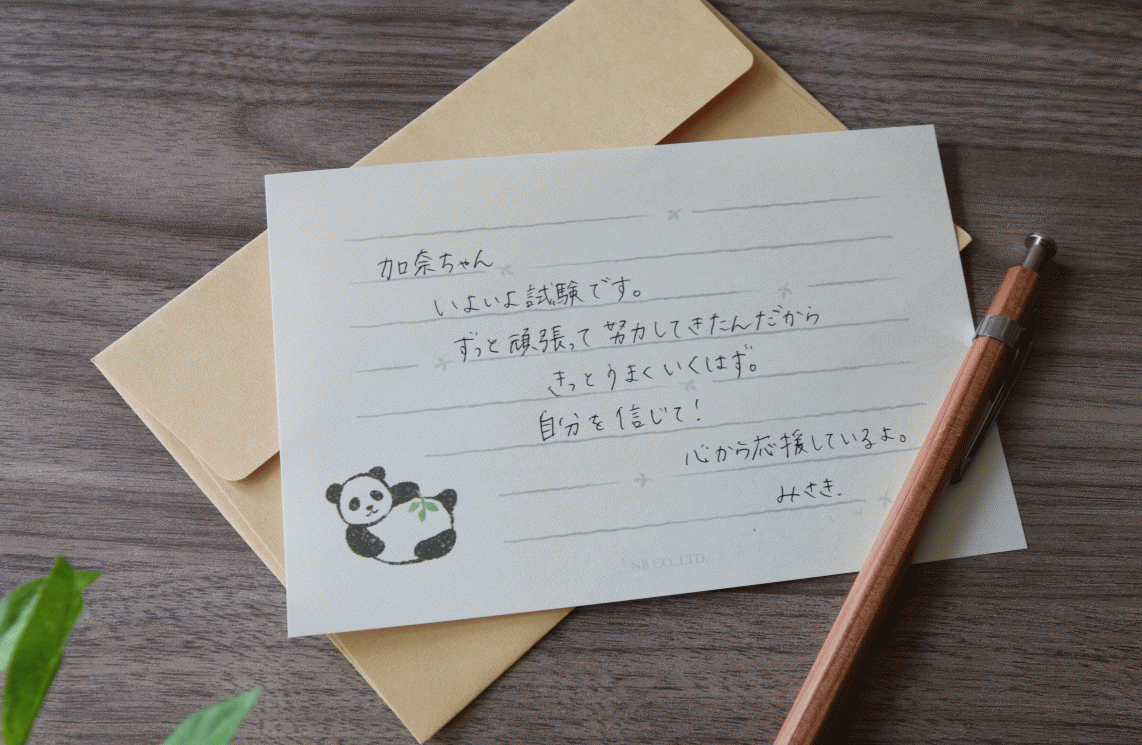 加奈ちゃん
いよいよ試験です。
ずっと頑張って努力してきたんだから
きっとうまくいくはず。
自分を信じて！
心から応援しているよ。
みさき.
NB CO.,LTD.